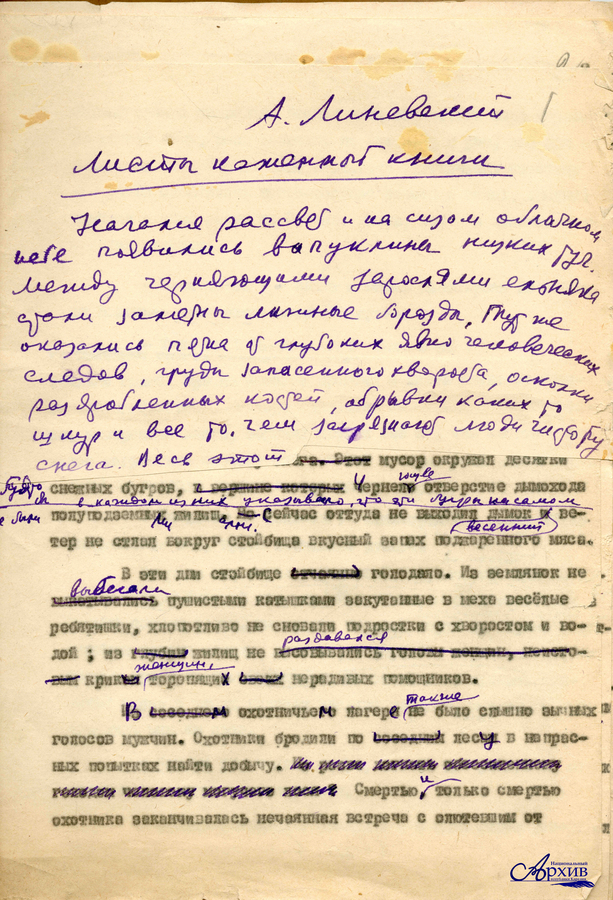 А. Линевский
Листы каменной книги
Начался рассвет и на сизом облачном
небе появились выпуклины низких туч.
Между чернеющими зарослями ельника
стали заметны лыжные борозды. Тут же
оказались цепка от глубоких явно человеческих
следов, груды запасенного хвороста, осколки
раздробленных костей, обрывки каких то
шкур и все то, чем загрязняют люди чистоту
снега. Весь этот га. Этот мусор окружал десятки
снежных бугров, в вершине которых чернело отверстие дымохода
в каждом из них указывало, что эти бугры на самом
полуподземных жилищ. Но Сейчас оттуда не выходил дымок и ве-
весенний
тер не стлал вокруг стойбища вкусный запах поджаренного мяса.
В эти дни стойбище отчаянно голодало. Из землянок не
выбегали
выкатывались пушистыми катышками закутанные в меха весёлые
ребятишки, хлопотливо не сновали подростки с хворостом и во-
раздавался
дой; из глубин жилищ не высовывались головы женщин,
женщин,
крики торопящих нерадивых помощников.
также
В соседнем охотничьем лагере не было слышно зычных
голосов мужчин. Охотники бродили по лесу в напрас-
ных попытках найти добычу.
Смертью и только смертью
охотника заканчивалась нечаянная встреча с лютевшим от
Национальный
Архив
Республики Карелия